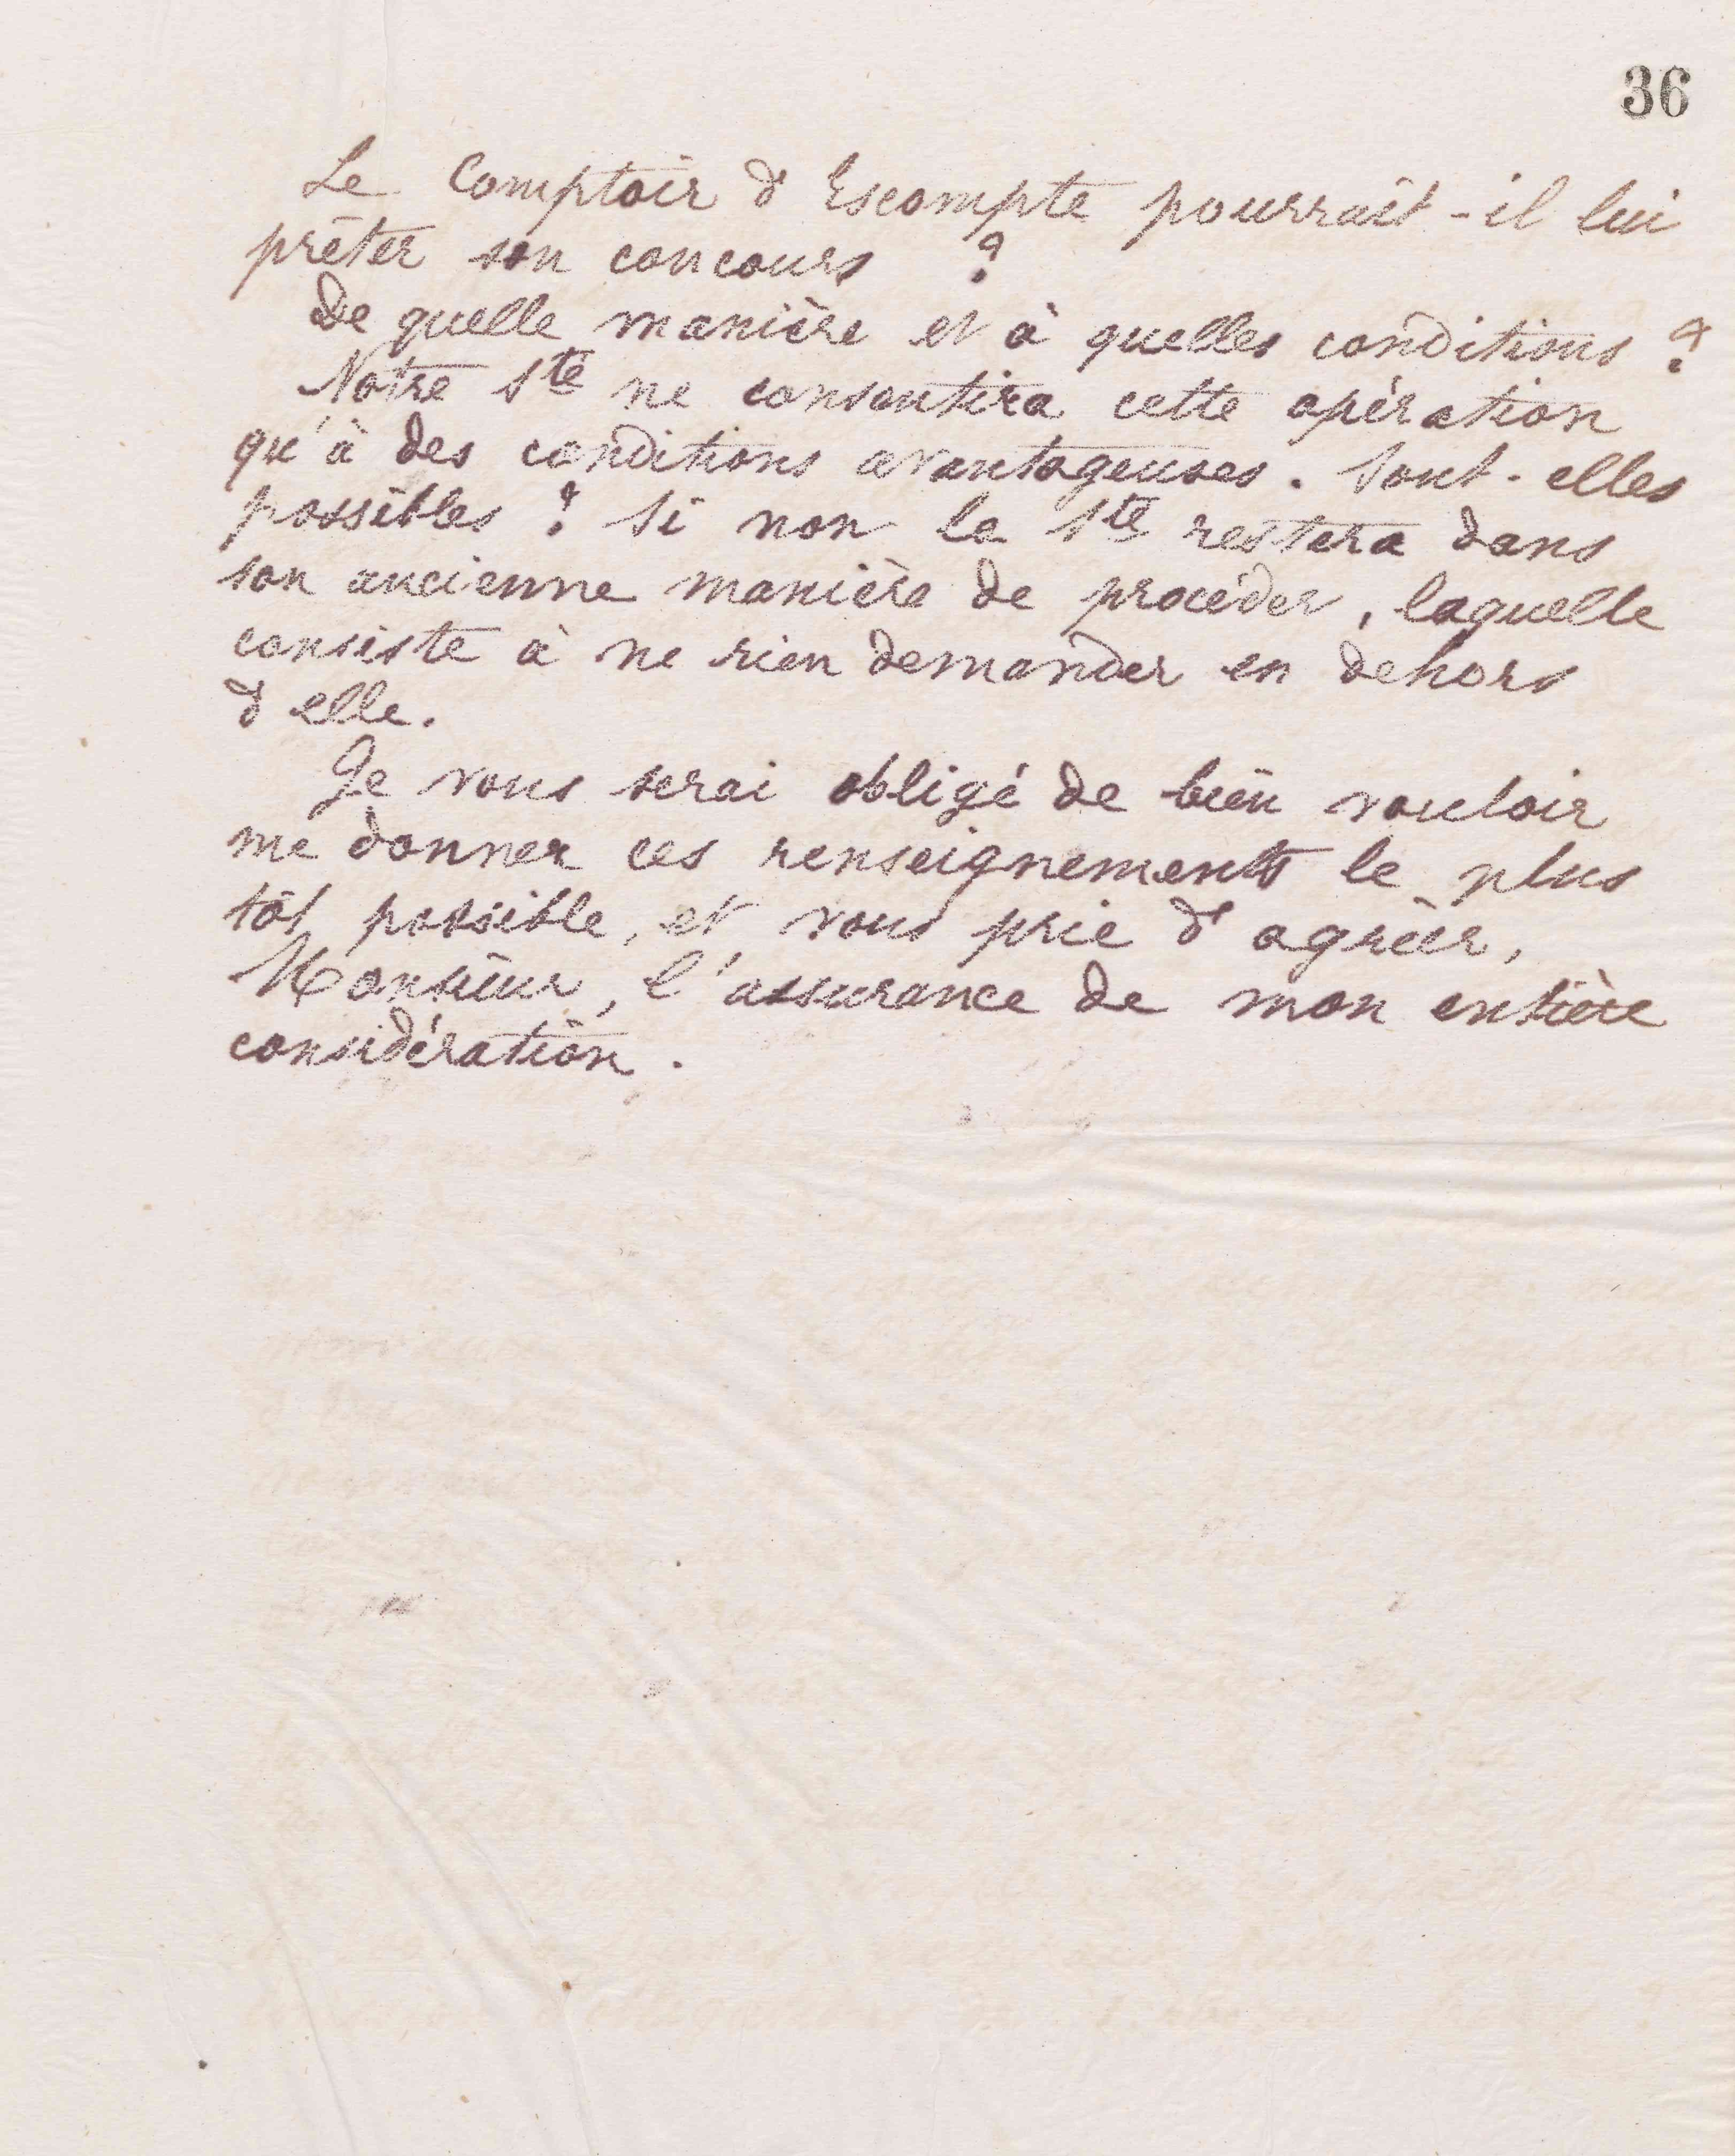 36
Le Comptoir d'Escompte pourrait-il lui
prêter son concours ?
De quelle manière et à quelles conditions ?
Notre Sté ne consentira cette opération
qu'à des conditions avantageuses. Sont-elles
possibles ? Si non la Sté restera dans
son ancienne manière de procéder, laquelle
consiste à ne rien demander en dehors
d'elle.
Je vous serai obligé de bien vouloir
me donner ces renseignements le plus
tôt possible, et vous prie d'agréer,
Monsieur, l'assurance de mon entière
considération.